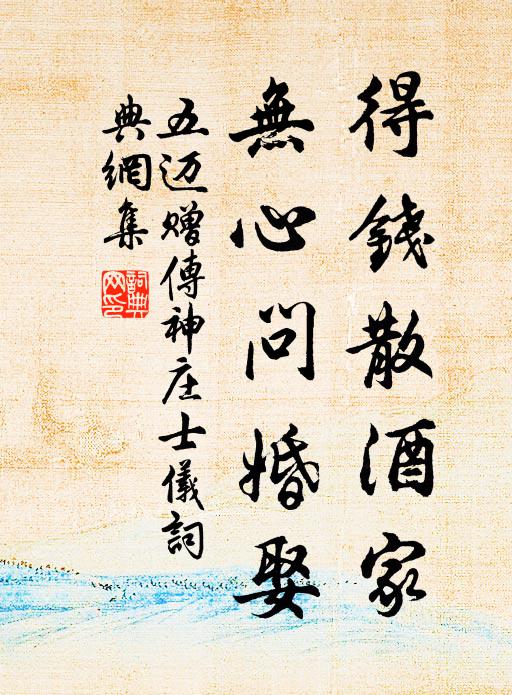 得錢散酒家
無心問婚娶
五迈赠傳神庄士儀詞
典網集
詞典
网印